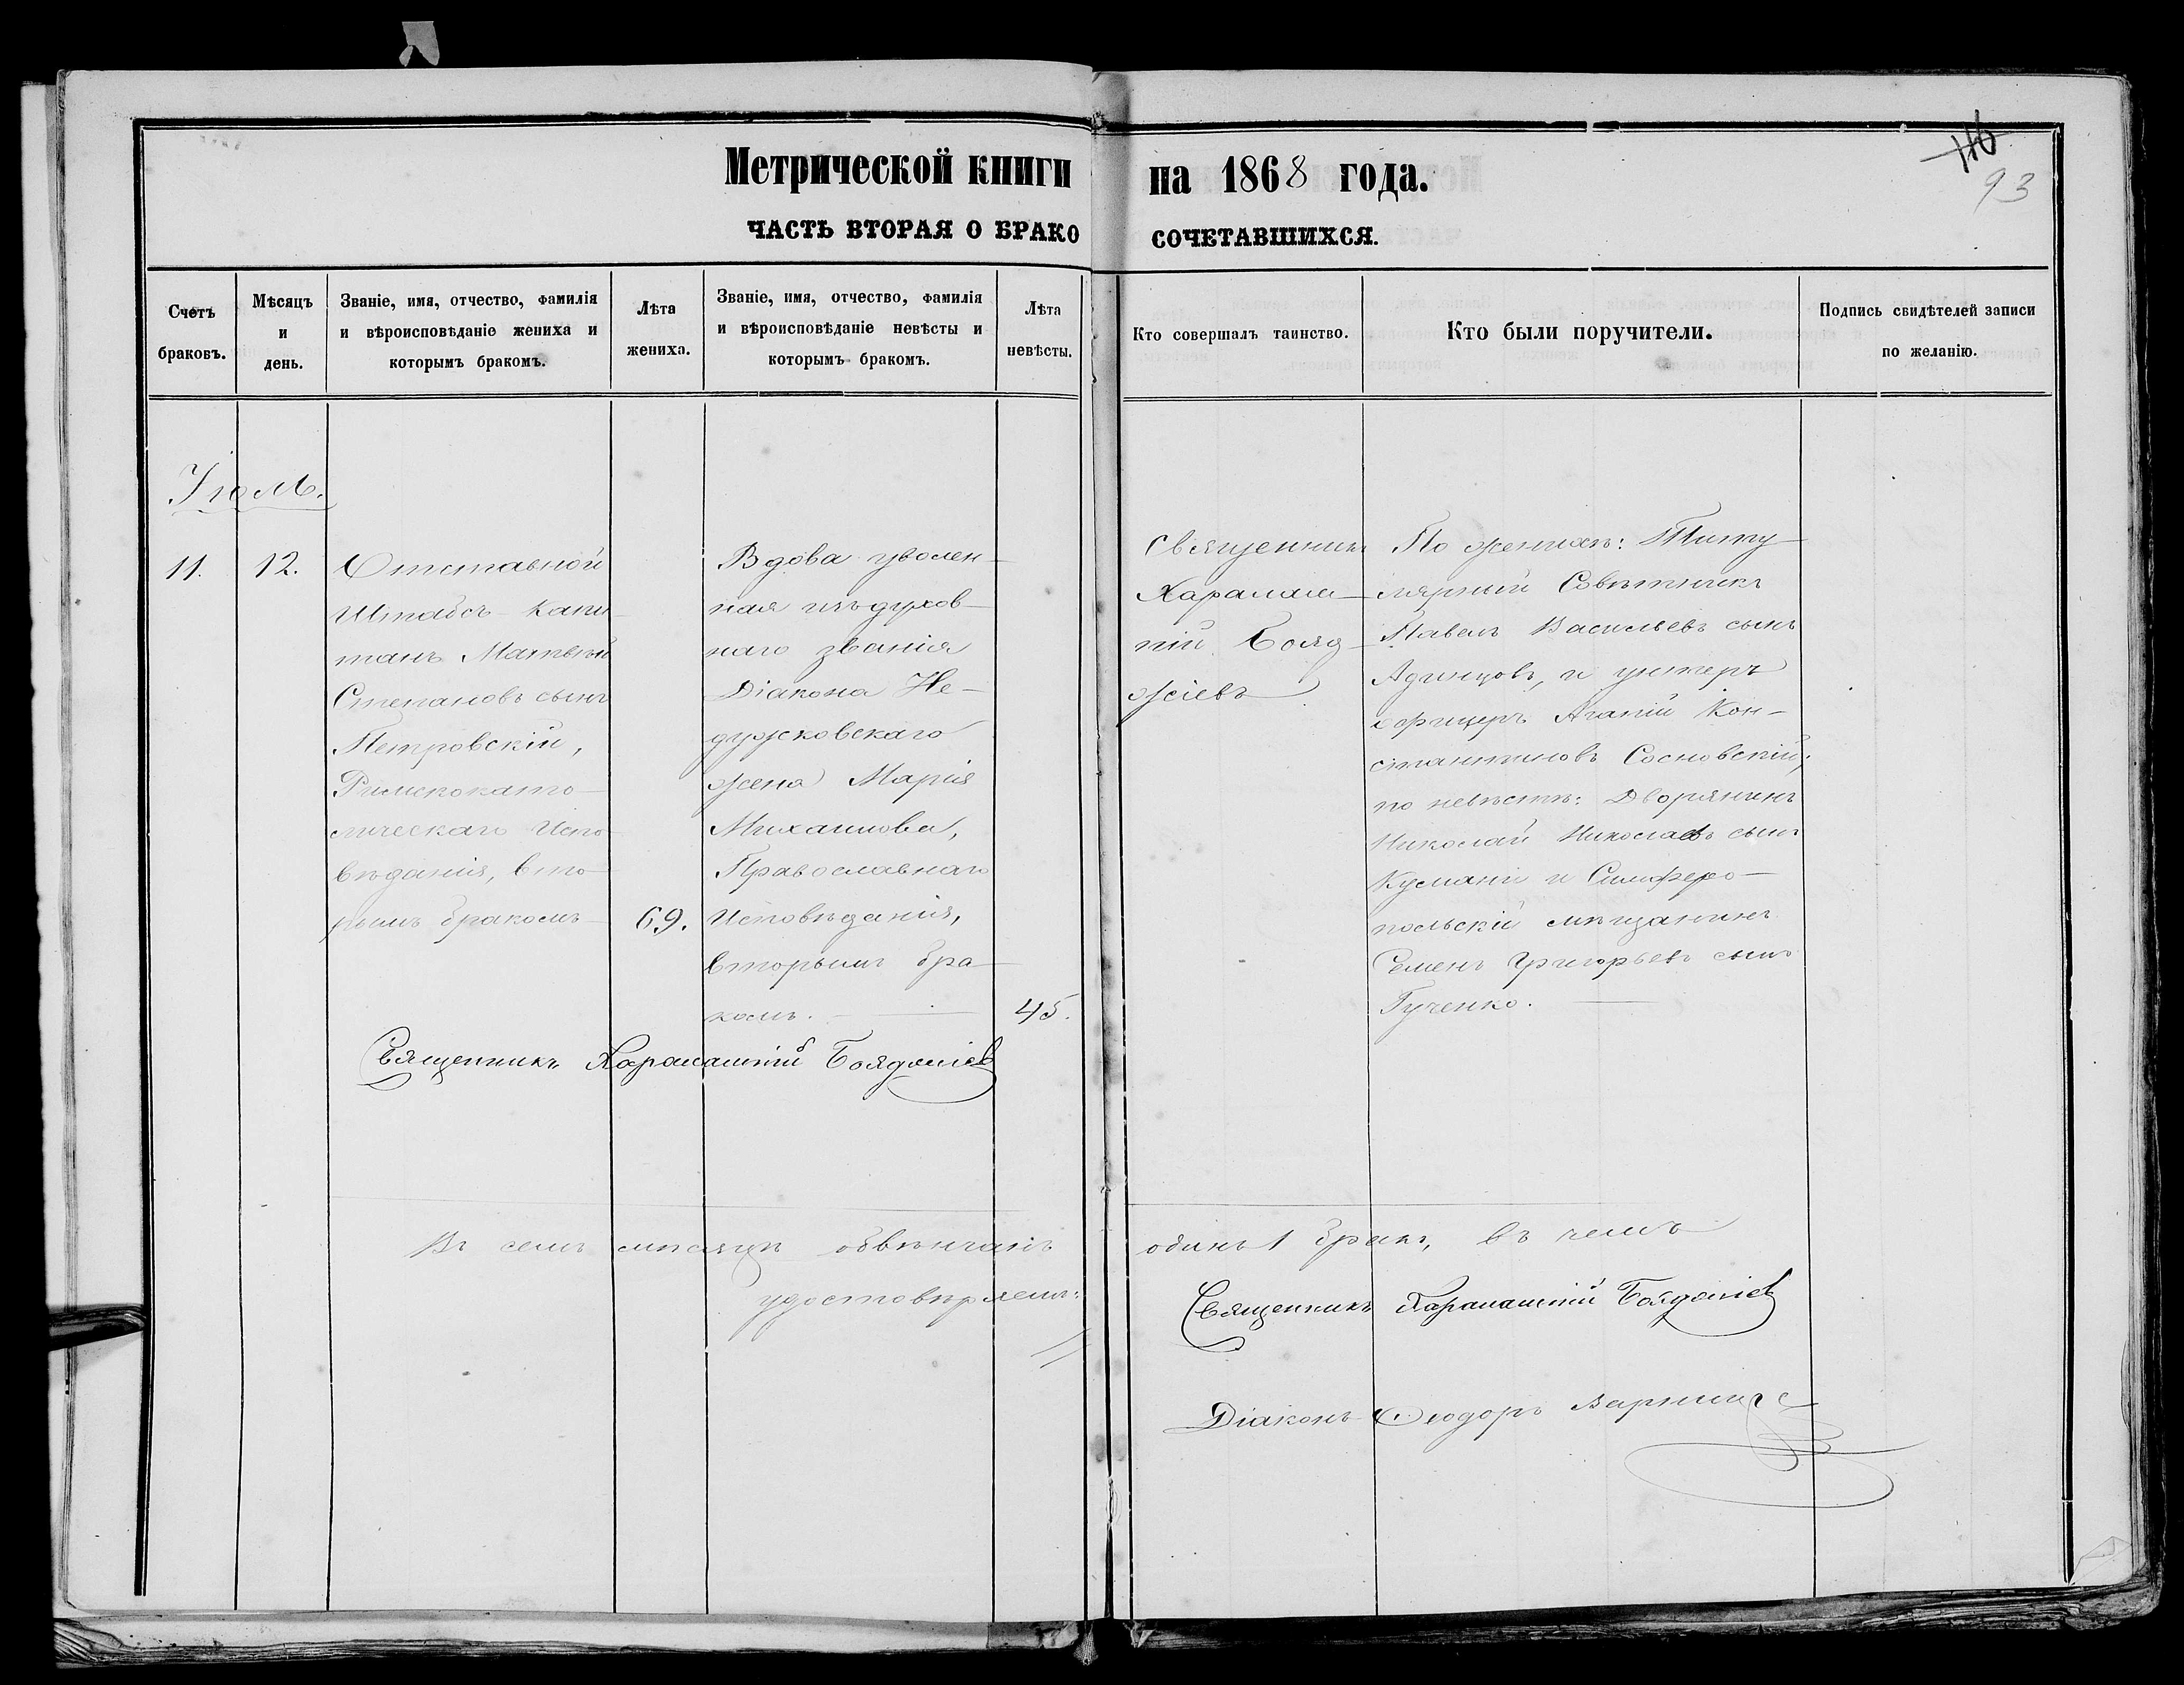 Метрической книги на 1868 года.
116
93
ЧАСТЬ ВТОРАЯ О БРАКОСОЧЕТАВШИХСЯ.
Счетъ браковъ.
Мѣсяцъ и день.
Званіе, имя, отчество, фамилія
и вѣроисповѣданіе жениха и
которымъ бракомъ.
Лѣта жениха.
Званіе, имя, отчество, фамилія
и вѣроисповѣданіе невѣсты и
которымъ бракомъ.
Лѣта невѣсты.
Кто совершалъ таинство.
Кто были поручители.
Подпись свидѣтелей записи
по желанію.
11.
12.
Отставной
Штабсъ-Капи-
танъ Матвѣй
Степановъ сынъ
Петровскій,
Римскокато-
лическаго Испо-
вѣданія, вто-
рымъ бракомъ
69.
Вдова уволен-
ная изъ духов-
наго званія
Діакона Не-
дужсковскаго
жена Марія
Михаилова,
Православнаго
Исповѣданія,
вторымъ бра-
комъ.
45.
Священникъ
Харалам-
пій Бояд-
жіевъ
По женихѣ: Титу-
лярный Совѣтникъ
Павелъ Васильевъ сынъ
Адинцовъ, и унтеръ
офицеръ Агапій Кон-
стантиновъ Сосновскій;
по невѣстѣ: Дворянинъ
Николай Николаевъ сынъ
Кумани и Симферо-
польскій мѣщанинъ
Семенъ Григорьевъ сынъ
Гученко.
Священникъ Харалампій Бояджіевъ
Въ семъ мѣсяцѣ обвѣнчанъ одинъ 1 бракъ, въ чемъ
удостовѣряемъ:
Священникъ Харалампій Бояджіевъ
Діаконъ Ѳеодоръ